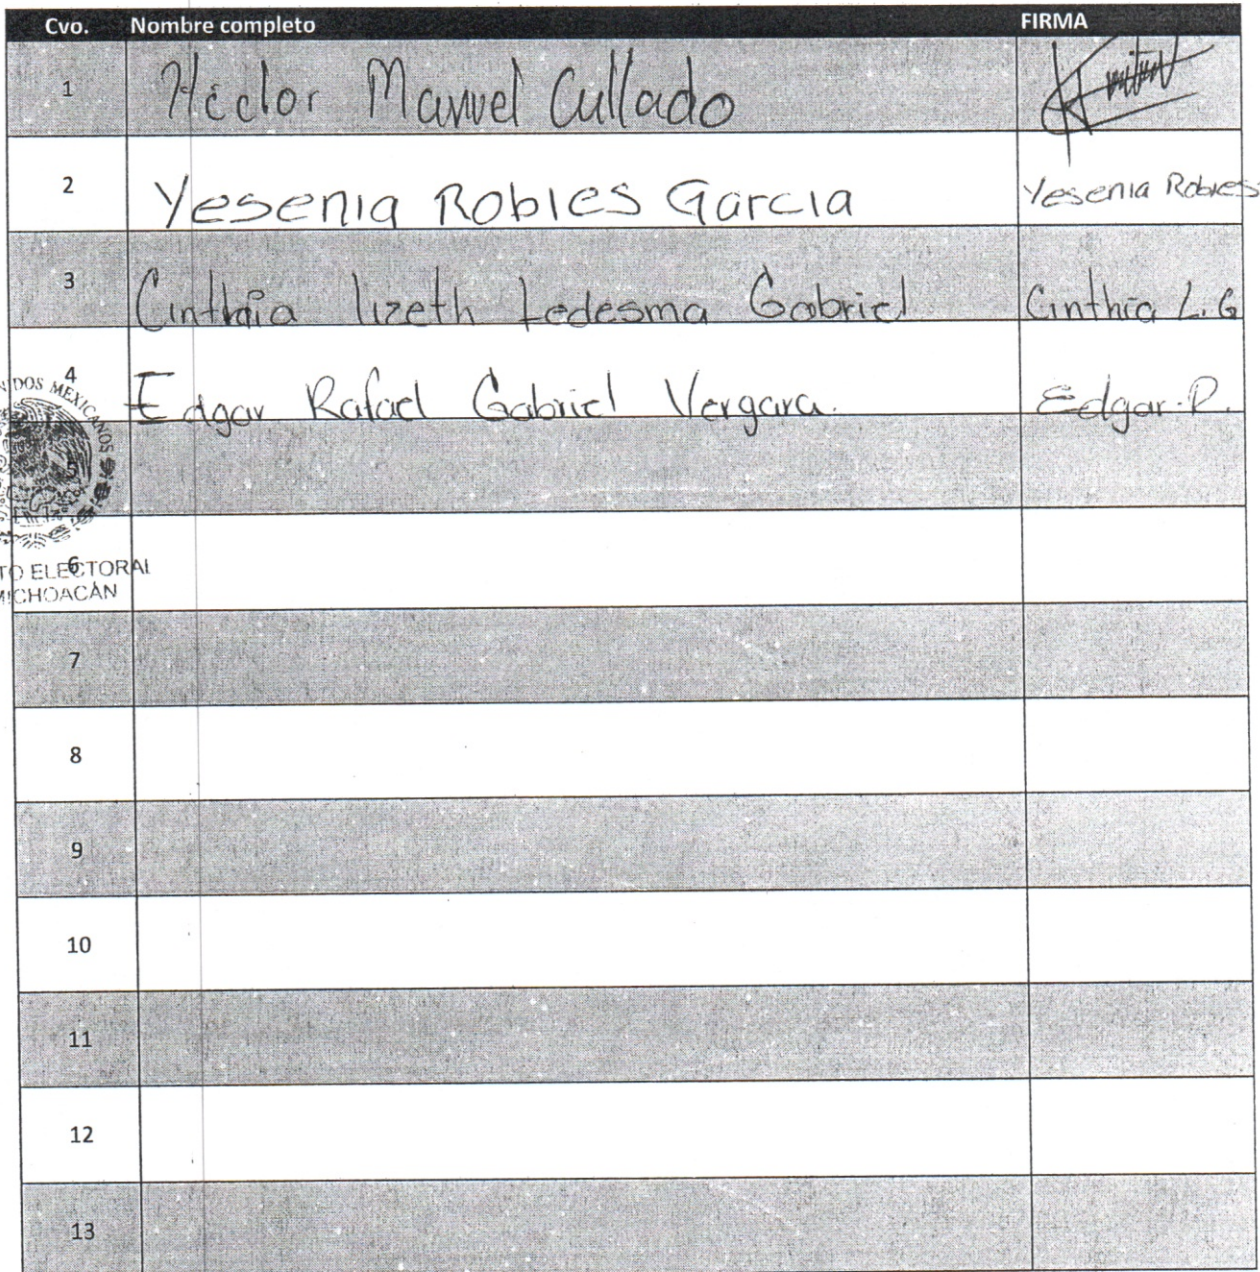 Cvo. Nombre completo FIRMA
1 Héctor Manuel Cullado
2 Yesenia Robles Garcia Yesenia Robles
3 Cinthia lizeth Ledesma Gabriel Cinthia L. G
4 Edgar Rafael Gabriel Vergara. Edgar. R.
MEXICANOS
5
6
ELECTORAL
MICHOACÁN
7
8
9
10
11
12
13